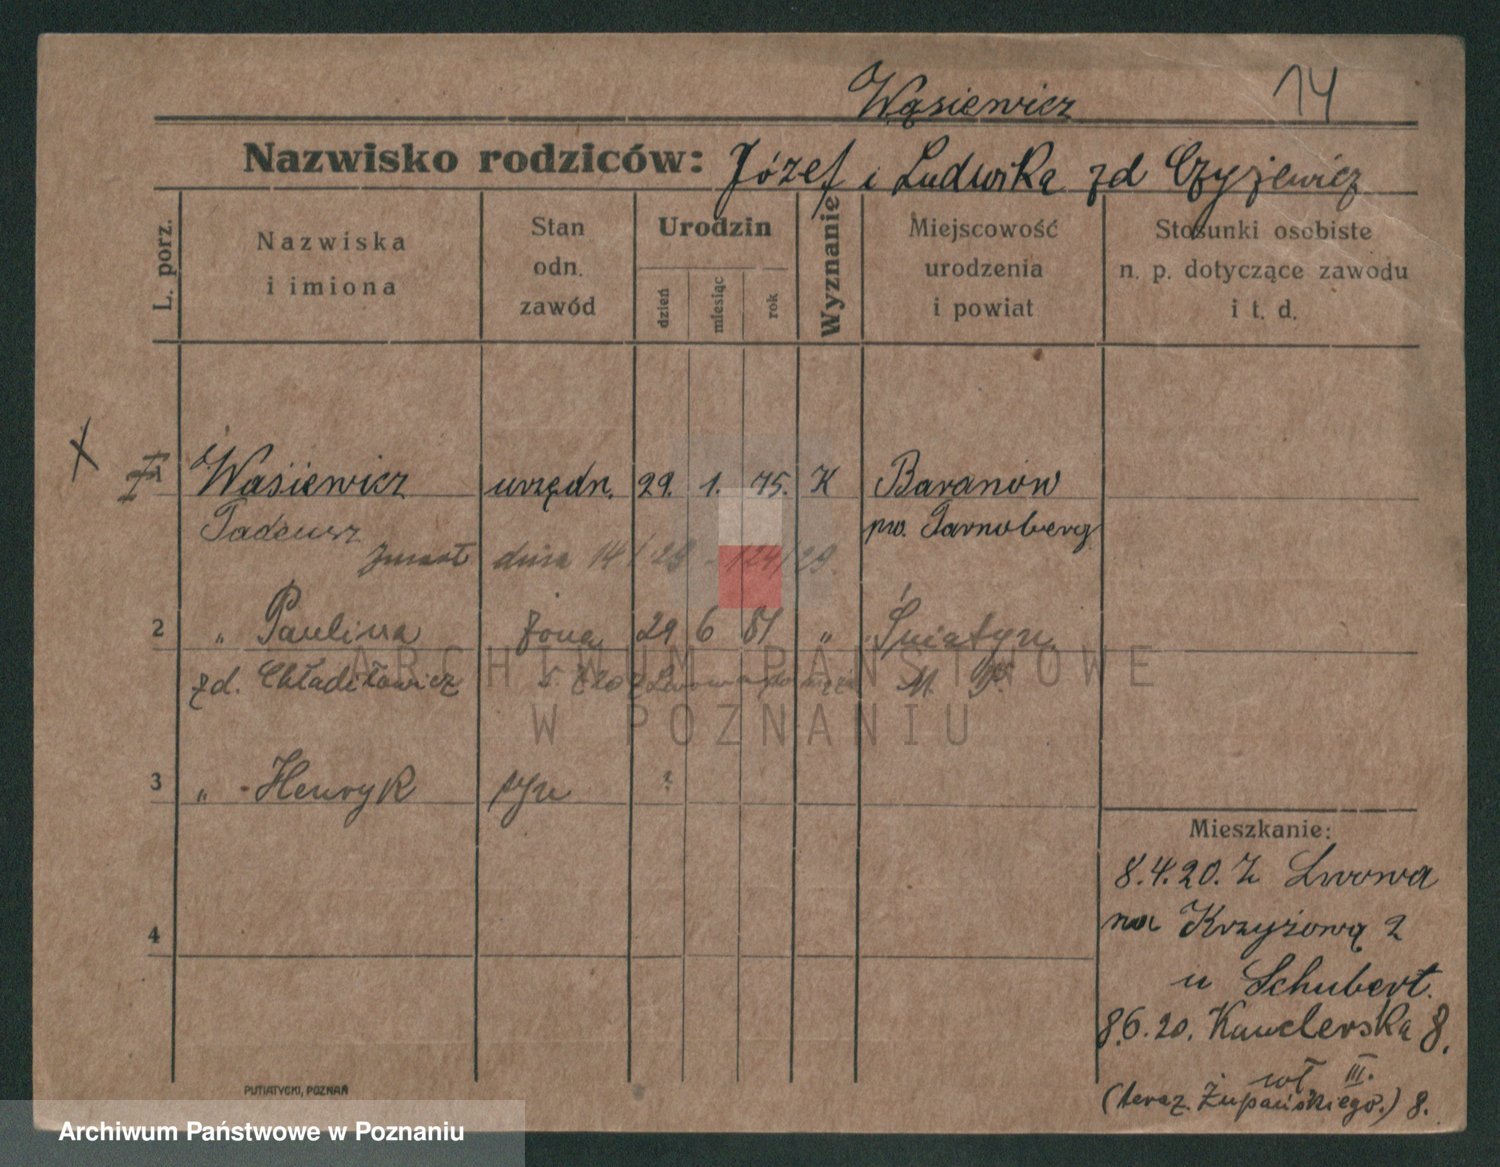 Wąsiewicz 14
Nazwisko rodziców: Józef i Ludwika zd Czyżewicz
L. porz.
Nazwiska
i imiona
Stan
odn.
zawód
Urodzin
dzień
miesiąc
rok
Wyznanie
Miejscowość
urodzenia
i powiat
Stosunki osobiste
n. p. dotyczące zawodu
i t. d.
X
1 Wąsiewicz urzędn. 29. 1. 75. K Baranów
Tadeusz pw. Tarnoberg
zmarł dnia 14/ 29 - 124/29.
2 „ Paulina żona 29 6 81 „ Śniatyn
zd. M. P.
3 „ Henryk syn ?
4
Mieszkanie:
8.4.20. Z Lwowa
na Krzyżową 2
u Schubert.
8.6.20. Kanclerska 8.
wł III.
(teraz. Żupańskiego.) 8.
PUTIATYCKI, POZNAŃ
ARCHIWUM PAŃSTWOWE
W POZNANIU
Archiwum Państwowe w Poznaniu